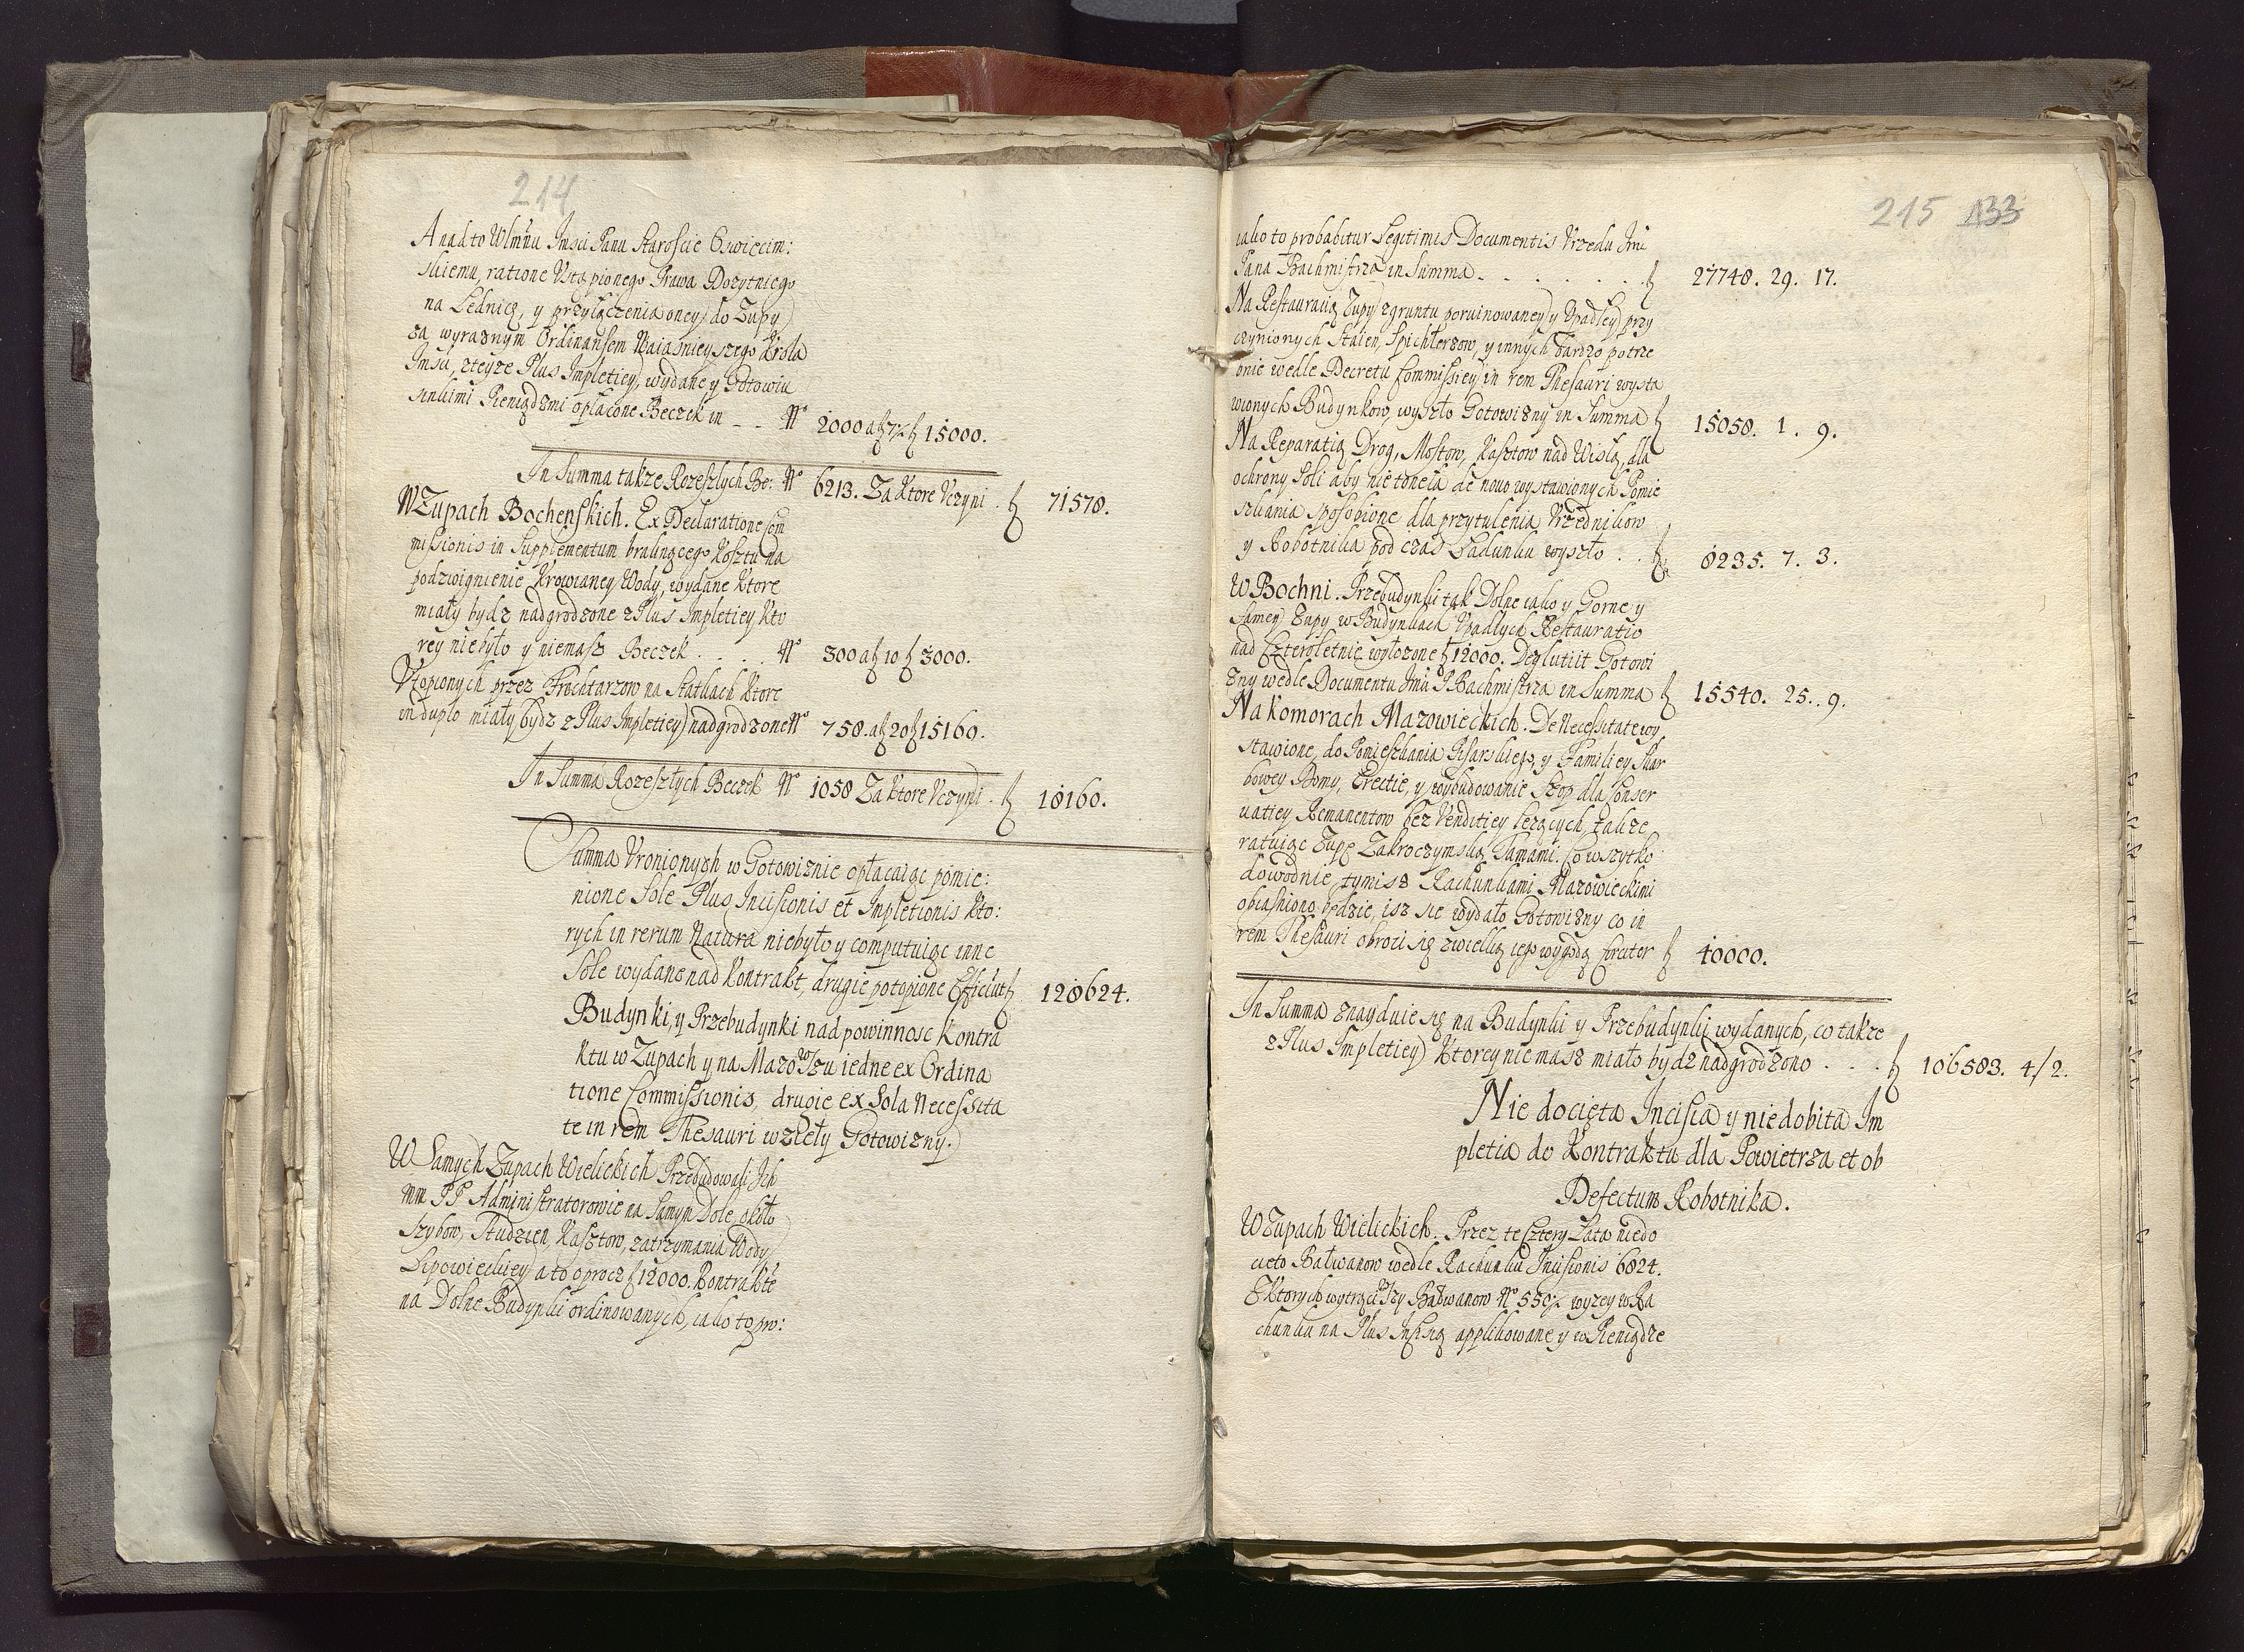 214
A nadto Wlmnu Imsci Panu Staroscie Oswiecim:
skiemu, ratione Vstąpionego Prawa Dozytniego
na Lednicą, y przyłączenia oney do Zupy
za wyraznym Ordinansem Naiasnieyszego Krola
Imsci, zteyze Plus Impletiey, wydane y Gotowiu
sinkimi Pieniądzmi opłacone Beczek in _ _ No 2000 a f 7½ f 15000.
In Summa takze Rozeszłych Be: No 6213. Za Ktore Vczyni . f 71578.
W Zupach Bochenskich. Ex Declaratione Com
missionis in Supplementum brakuącego Kosztu na
podzwignienie Krowianey Wody, wydane Ktore
miały bydz nadgrodzone z Plus Impletiey Kto
rey niebyło y niemasz Beczek . . . . No 300 a f 10 f 3000.
Vtopionych przez Frochtarzow na Statkach Ktore
in duplo miały bydz z Plus Impletiey nadgrodzone No 758. a f 20 f 15160.
In Summa Rozeszłych Beczek No 1058 Za Ktore Vczyni . f 18160.
Summa Vronionych w Gotowiznie opłacaiąc pomie:
nione Sole Plus Incisionis et Impletionis Kto:
rych in rerum Natura niebyło y computuiąc inne
Sole wydane nad Kontrakt, drugie potopione Efficiut f 128624.
Budynki, y Przebudynki nad powinnosc Kontra
ktu w Zupach y na Mazowszu iedne ex Ordina
tione Commissionis, drugie ex Sola Necessita
te in rem Thesauri wzięły Gotowizny.
W Samych Zupach Wielickich Przebudowali Ich
Mm PP Administratorowie na Samym Dole, około
Szybow, Studzien, Kasztow, zatrzymania Wody
Lipowieckiey a to oprocz f 12000. Kontrakte
na Dolne Budynki ordinowanych, iako to pro:
215 133
iako to probabitur Legitimis Documentis Vrzedu Jmci
Pana Bachmistrza in Summa . . . . . . . f 27748. 29. 17.
Na Restauratią Zupy zgruntu poruinowaney y Vpadłey, przy
czynionych Staien, Spichlerzow, y innych bardzo potrze
bnie wedle Decretu Commissiey in rem Thesauri wysta
wionych Budynkow, wyszło Gotowizny in Summa f 15058. 1. 9.
Na Reparatią Drog, Mostow, Kasztow nad Wisłą, dla
ochrony Soli aby nietoneła de nouo wystawionych Pomie
szkania sposobione dla przytulenia Vrzednikow
y Robotnika pod czas Ładunku wyszło . . f 8235. 7. 3.
W Bochni. Przebudynki tak Dolne iako y Gorne y
Samey Zupy w Budynkach Vpadłych Restauratio
nad Czteroletnie wyłozone f 12000. Deglutiit Gotowi
zny wedle Documentu Jmci P Bachmistrza in Summa f 15540. 25. 9.
Na Komorach Mazowieckich. De Necessitate wy
stawione, do Pomieszkania Pisarskiego, y Familiey Skar
bowey Domy, Erectie, y wybudowanie Szop dla Conser
uatiey Remanentow bez Venditiey lezących, takze
ratuiąc Zupę Zakroczymską Tamami. Co wszytko
dowodnie tymisz Rachunkami Mazowieckimi
obiasniono będzie, isz sie wydało Gotowizny co in
rem Thesauri obroci się zwielką iego wygodą Circiter f 40000.
In Summa znayduie się na Budynki y Przebudynki wydanych, co takze
z Plus Impletiey Ktorey niemasz miało bydz nadgrodzono . . . f 106583. 4/2.
Nie docięta Incisia y niedobita Im
pletia do Kontraktu dla Powietrza et ob
Defectum Robotnika.
W Zupach Wielickich. Przez te Cztery Lata niedo
cieto Bałwanow wedle Rachunku Incisionis 6824.
Z Ktorych wytrąciwszy Bałwanow No 550½ wyzey w Ra
chunku na Plus Incisią applikowane y w Pieniądze